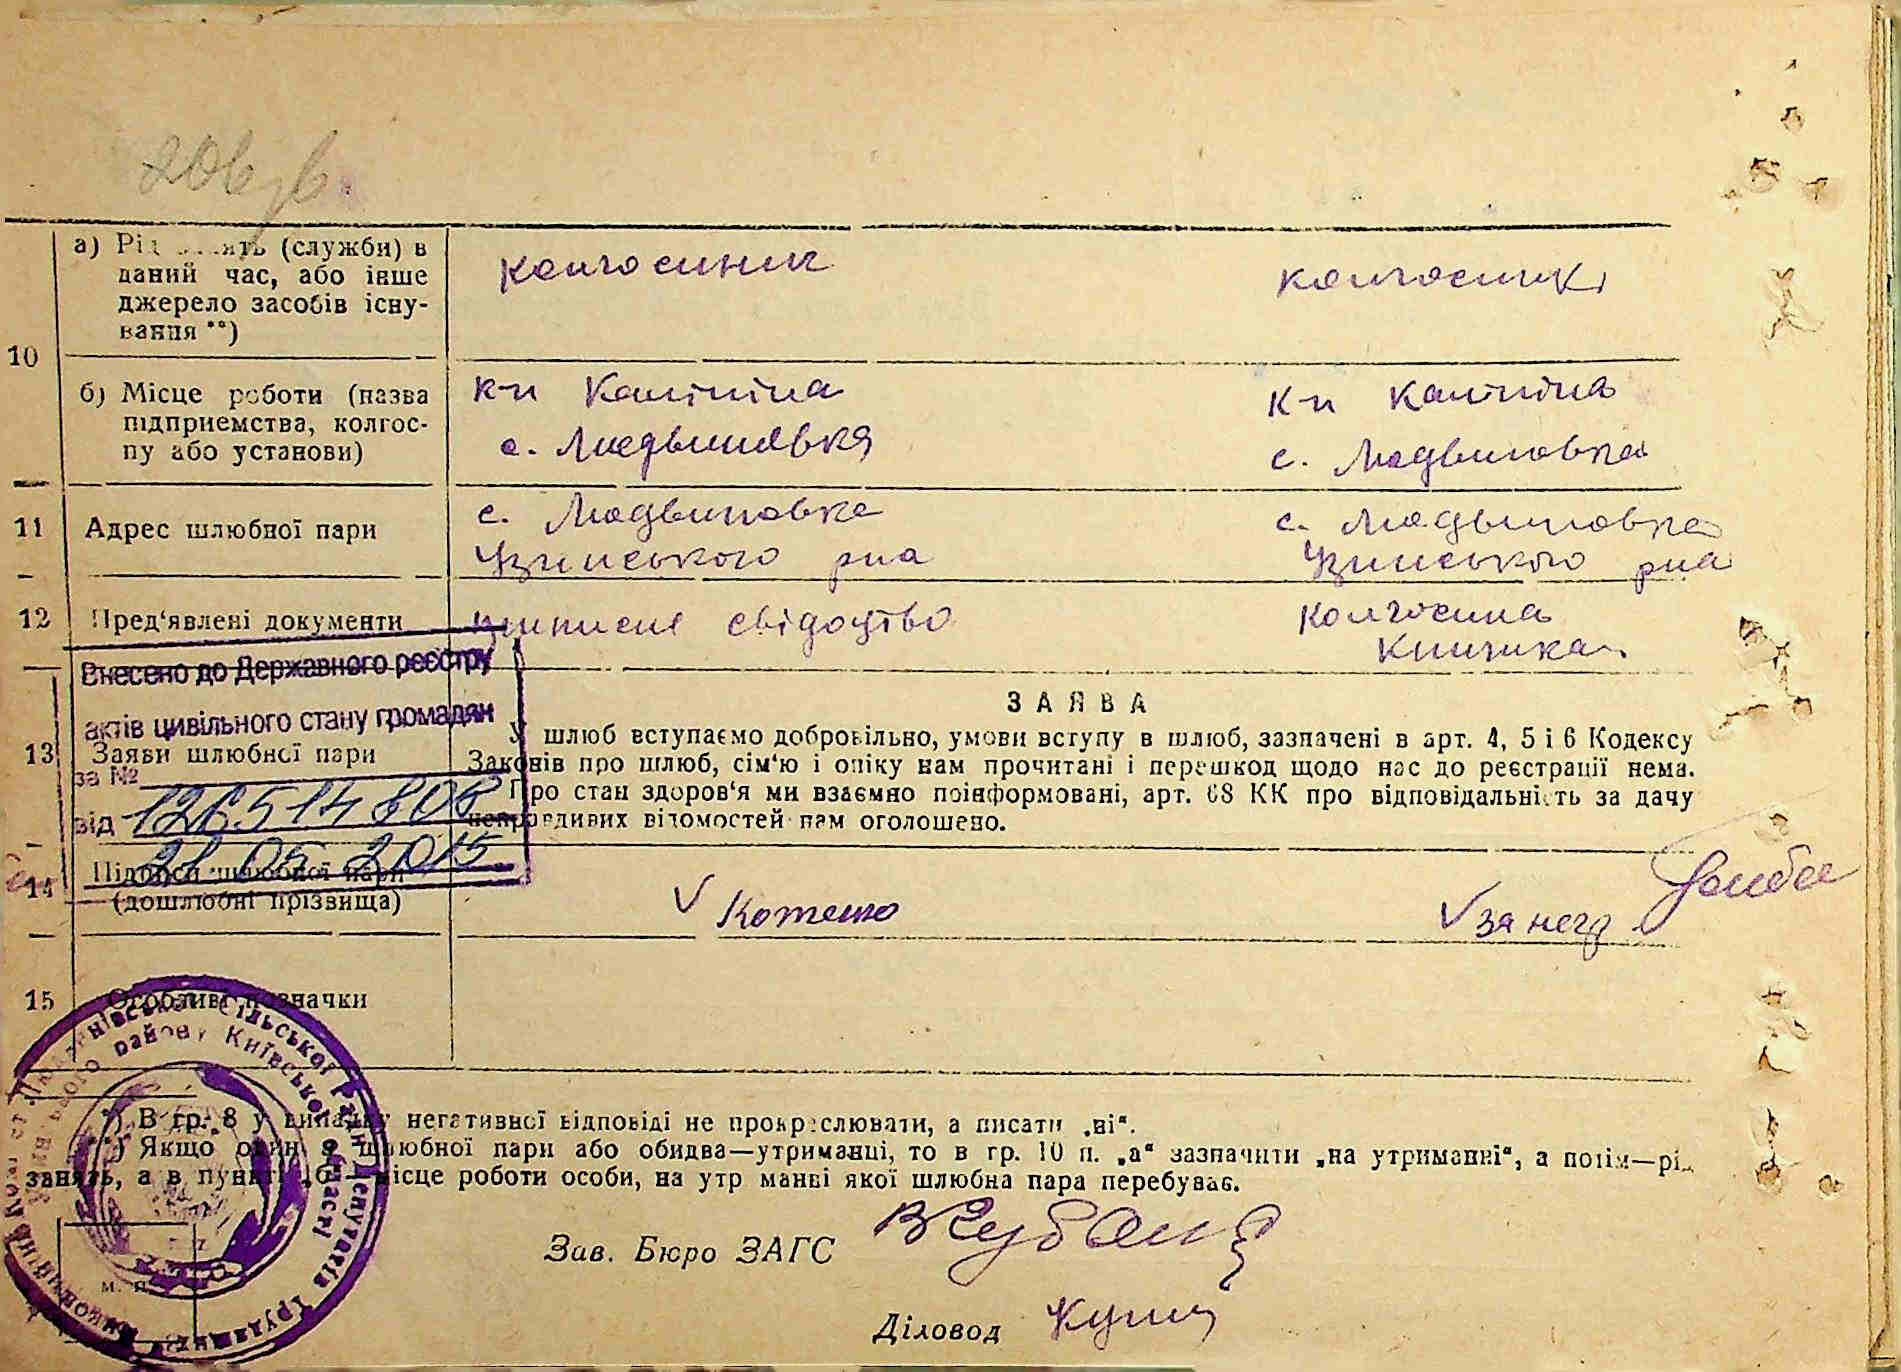 а) Рід занять (служби) в
даний час, або інше
джерело засобів існу-
вання **)
колгоспник
колгоспниця
10
б) Місце роботи (назва
підприємства, колгос-
пу або установи)
к-п Калініна
с. Людвиновка
к-п Калініна
с. Людвиновка
11
Адрес шлюбної пари
с. Людвиновка
Узинського р-на
с. Людвиновка
Узинського р-на
12
Пред‘явлені документи
приписне свідоцтво
колгоспна
книжка
Внесено до Державного реєстру
актів цивільного стану громадян
за №
126514808
від
21 05 2015
13
Заяви шлюбної пари
ЗАЯВА
У шлюб вступаємо добровільно, умови вступу в шлюб, зазначені в арт. 4, 5 і 6 Кодексу
Законів про шлюб, сім‘ю і опіку нам прочитані і перешкод щодо нас до реєстрації нема.
Про стан здоров‘я ми взаємно поінформовані, арт. 68 КК про відповідальність за дачу
неправдивих відомостей нам оголошено.
14
Підписи шлюбної пари
(дошлюбні прізвища)
V
V за неї
15
Особливі позначки
*) В гр. 8 у випадку негативної відповіді не прокреслювати, а писати „ні“.
**) Якщо один з шлюбної пари або обидва—утриманці, то в гр. 10 п. „а“ зазначити „на утриманні“, а потім—рід
занять, а в пункті „б“—місце роботи особи, на утриманні якої шлюбна пара перебуває.
Зав. Бюро ЗАГС
Діловод
м. п.
сільської Ради Депутатів Трудящих
району Київської області